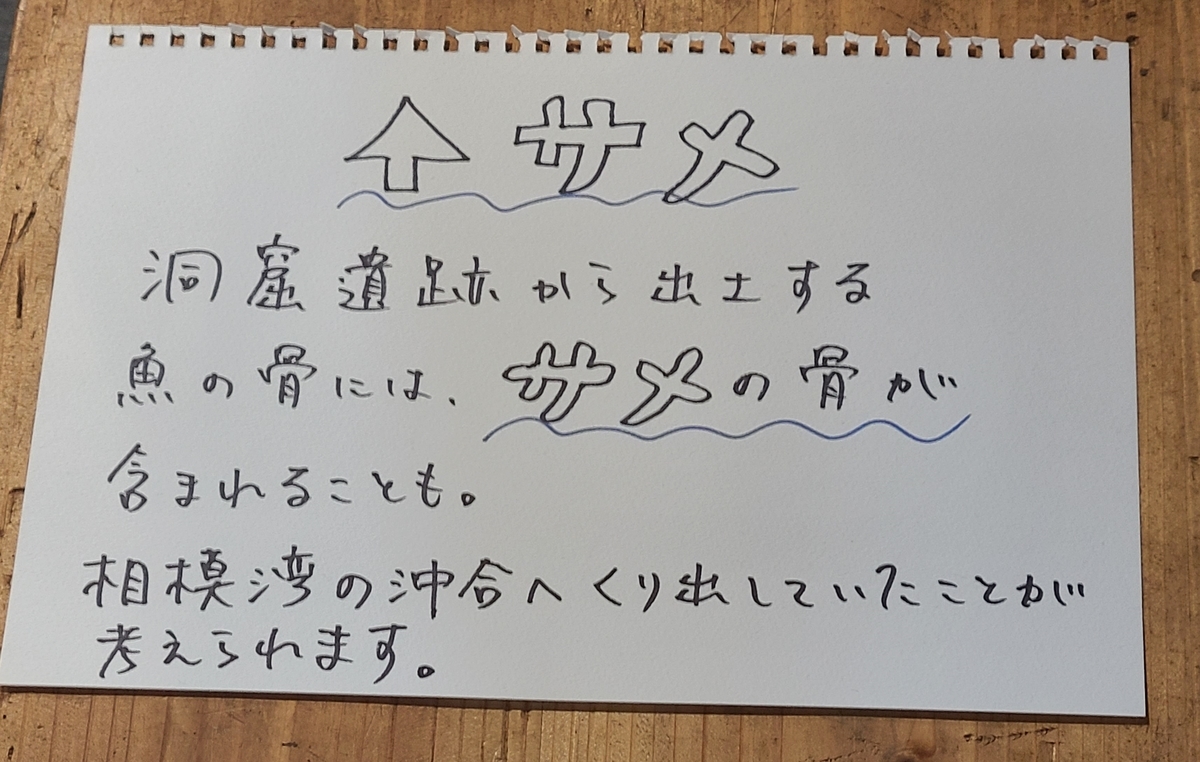 ↑ サメ
洞窟遺跡から出土する
魚の骨には、サメの骨が
含まれることも。
相模湾の沖合へくり出していたことが
考えられます。